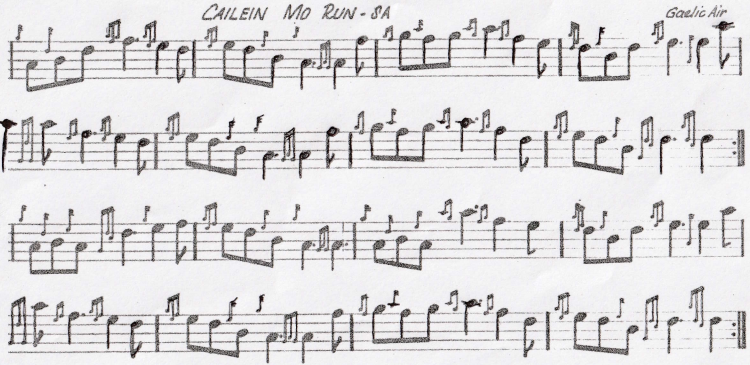 CAILEIN MO RUN-SA
Gaelic Air